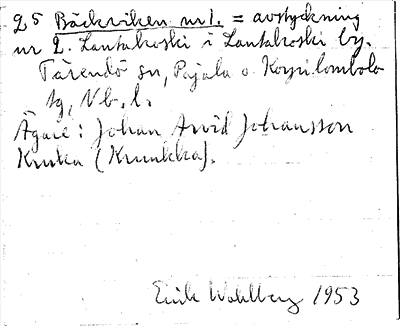 25 Bäckviken nr 1. = avstyckning
nr 2. Lantakoski i Lantakoski by.
Tärendö sn, Pajala o. Korpilombolo
tg, Nb. l.
Ägare: Johan Arvid Johansson
Krukka (Krunkka).
Erik Wahlberg 1953